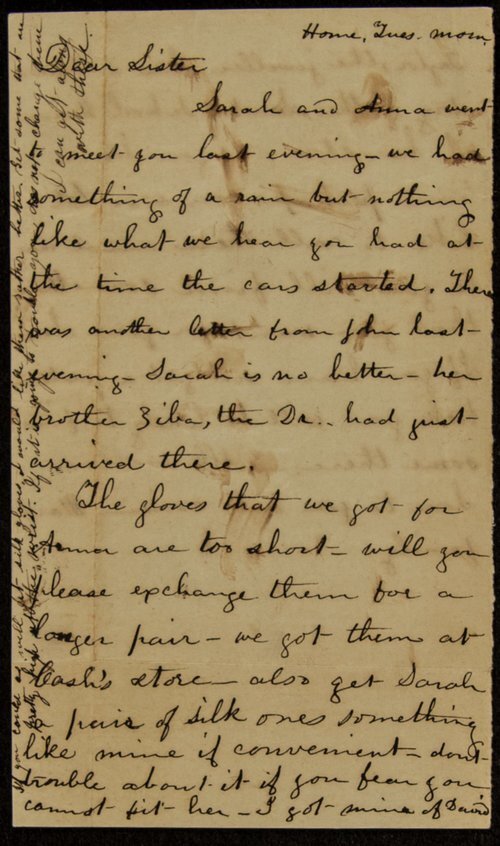 Home, Tues. morn.
Dear Sister
Sarah and Anna went
meet you last evening – we had
something of a rain but nothing
like what we hear you had at
the time the cars started. There
was another letter from John last
evening – Sarah is no better – her
brother Ziba, the Dr.. had just
arrived there.
The gloves that we got for
Anna are too short – will you
please exchange them for a
longer pair – we got them at
Cash's store – also get Sarah
a pair of silk ones something
like mine if convenient – don't
trouble about it if you fear you
cannot fit her – I got mine of David
If you could as well get silk gloves I would like them rather better. Get some that are
pretty high at the wrist. If it is going to trouble you do not change them
I can get along
with them.